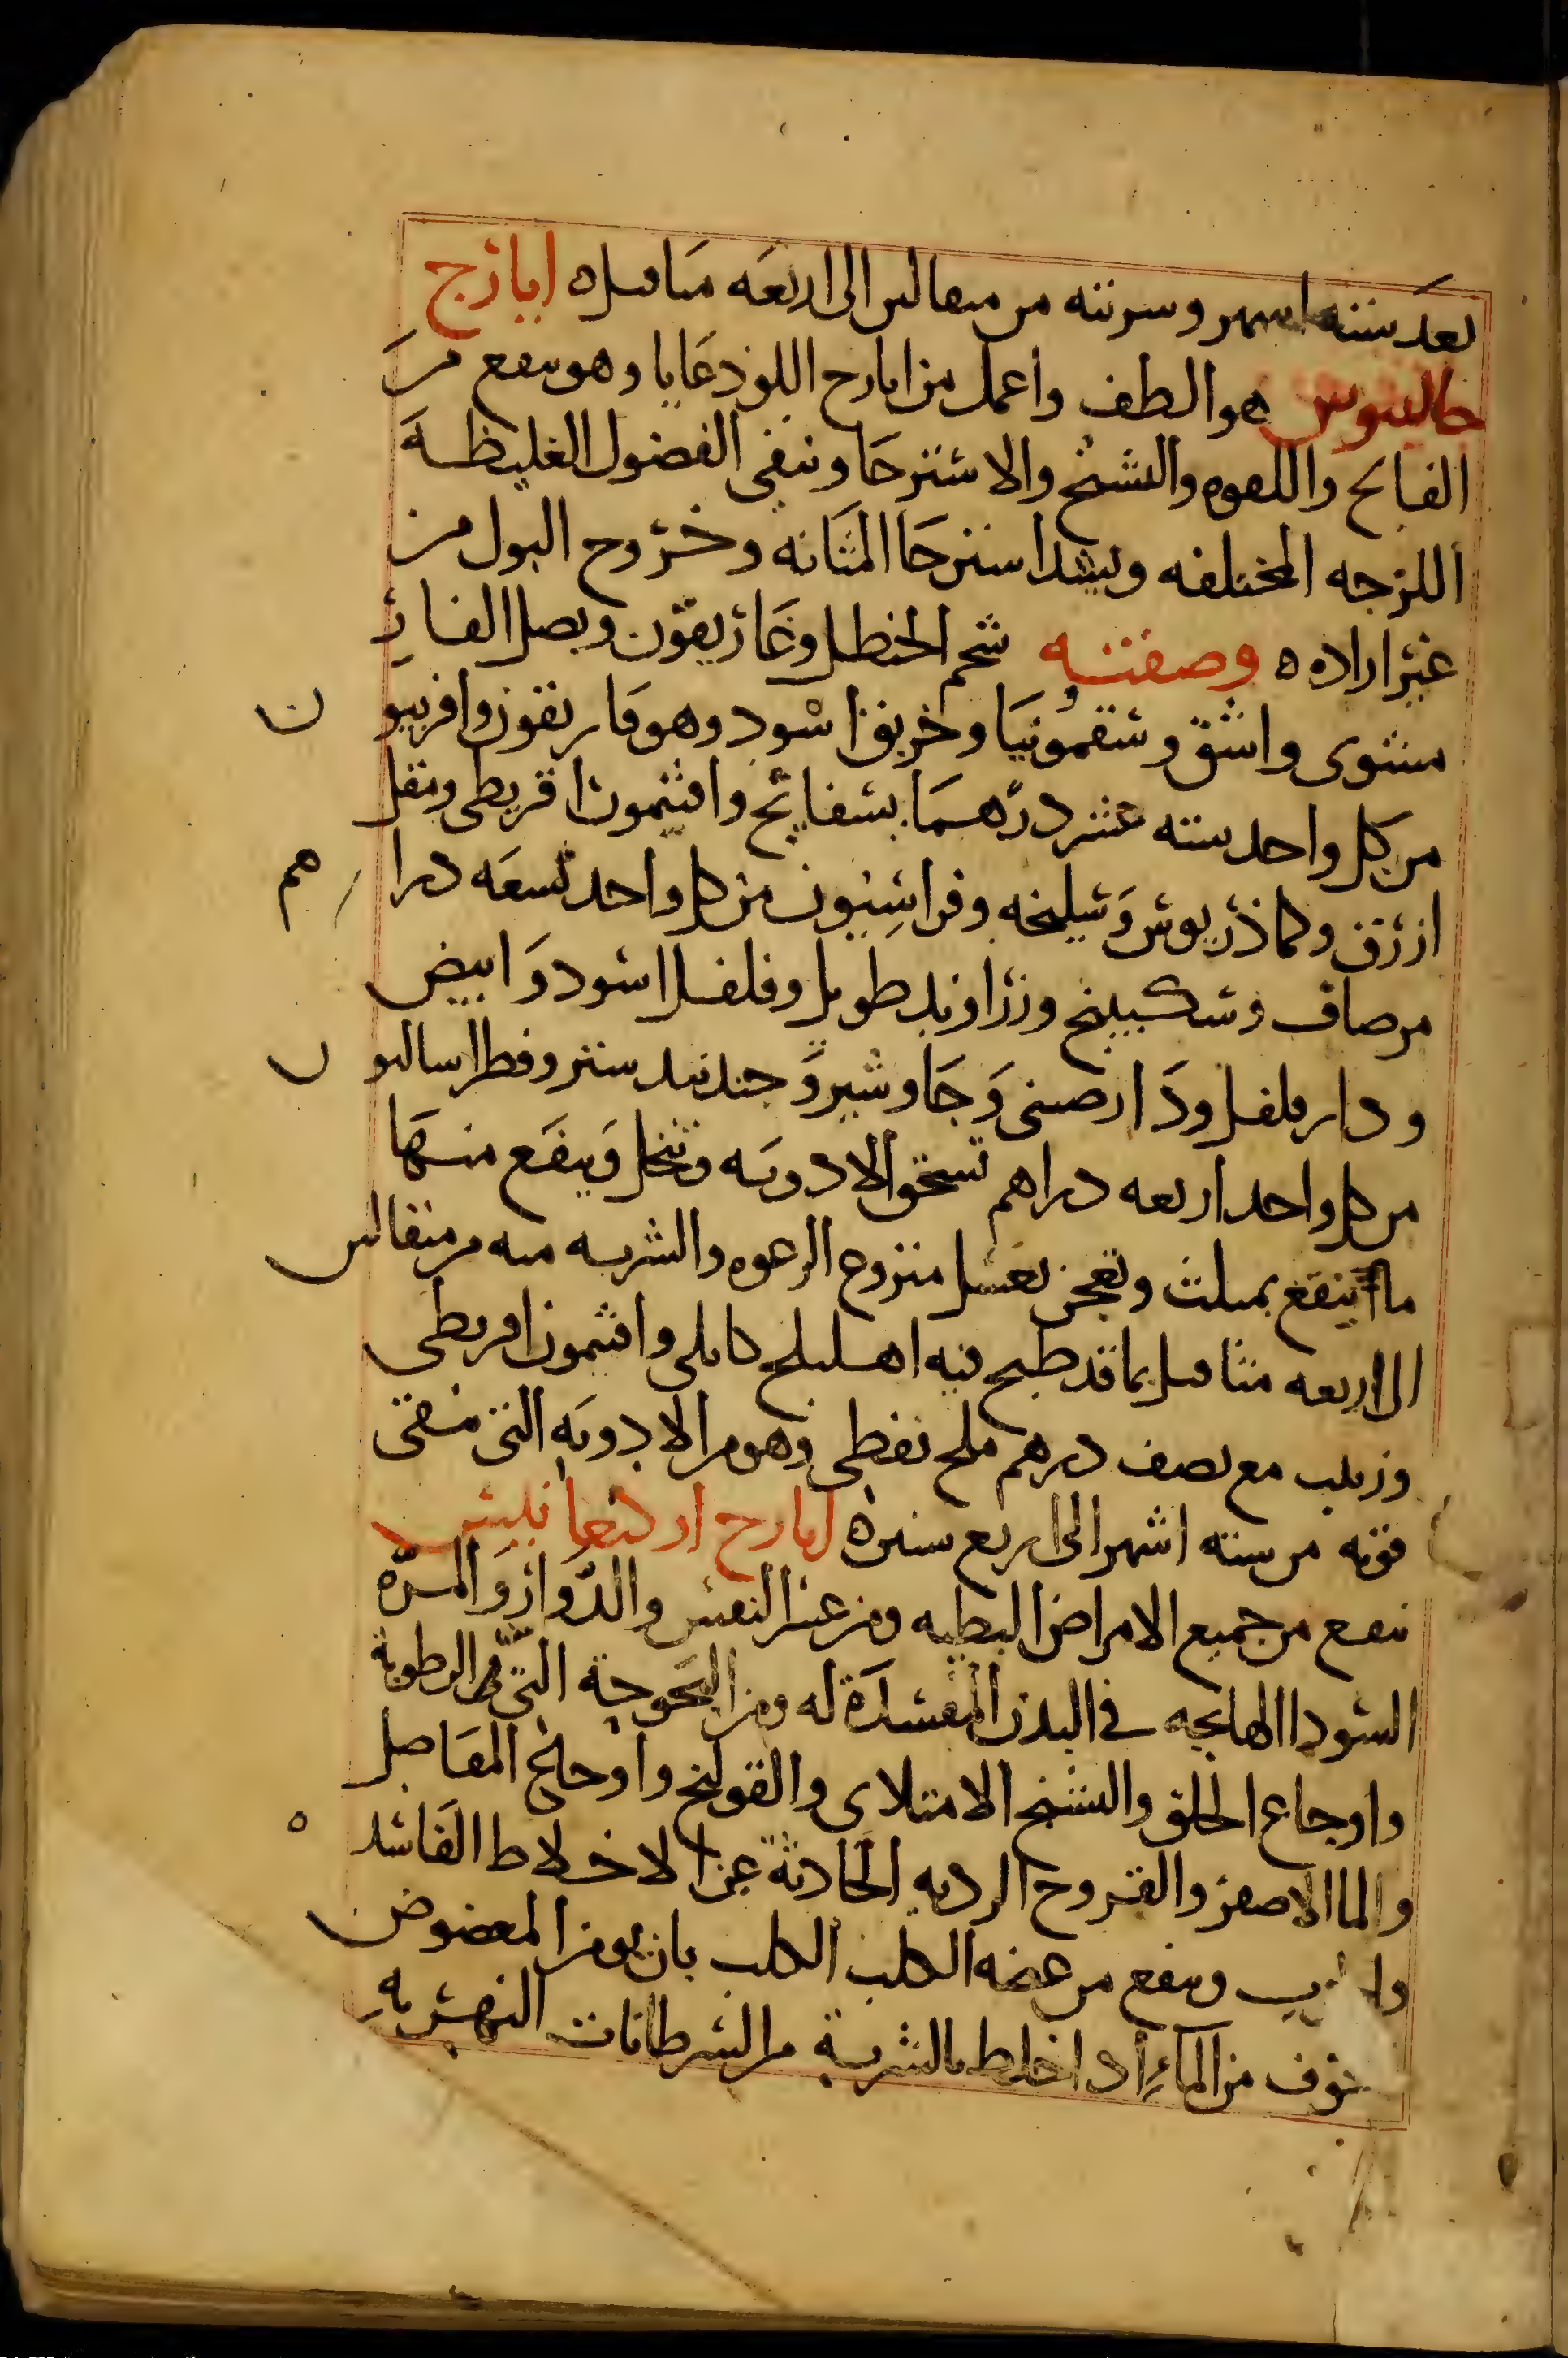 بعد ستة اشهر وشربته من مثقالين الى اربعة مثاقيل ه ايارج
جالينوس هو الطف واعمل من ايارج اللوذعايا وهو ينفع من
الفالج واللقوه والتشنج والاسترخا وينقي الفضول الغليظة
اللزجه المختلفه ويشد استرخا المثانه وخروج البول من
غير اراده ه وصفته شحم الحنظل وغاريقون وبصل الفار
مشوى واشق وسقمونيا وخربق اسود وهو فاريقون وافربيون
من كل واحد ستة عشر درهما بسفايج وافتيمون اقريطى ومقل
ازرق وكماذريوس وسليخه وفراسيون من كل واحد تسعه دراهم
مر صاف وسكبينج وزراوند طويل وفلفل اسود وابيض
ودار فلفل ودارصينى وجاوشير وجندبيدستر وفطراساليون
من كل واحد اربعه دراهم تسحق الادويه وتنخل وينقع منها
ما ينقع بمثلث وتعجن بعسل منزوع الرعوه والشربه منه من مثقالين
الى اربعه مثاقيل بما قد طبخ فيه اهليلج كابلى وافتيمون اقريطى
وزبيب مع نصف درهم ملح نفطى وهو من الادويه التى تبقى
قوته من ستة اشهر الى اربع سنين ه ايارج اركيغانيس
ينفع من جميع الامراض البطيه ومن عسر النفس والدوار والمرة
السودا الهايجه فى البدن المفسدة له ومن البحوحة التى من الرطوبة
واوجاع الحلق والتشنج الامتلاى والقولنج واوجاع المفاصل
والما الاصفر والقروح الرديه الحادثة عن الاخلاط الفاسده
وينفع من عضه الكلب الكلب بان يومن المعضوض
خوف من الماء اذا خلط بالشربة من السرطانات النهريه